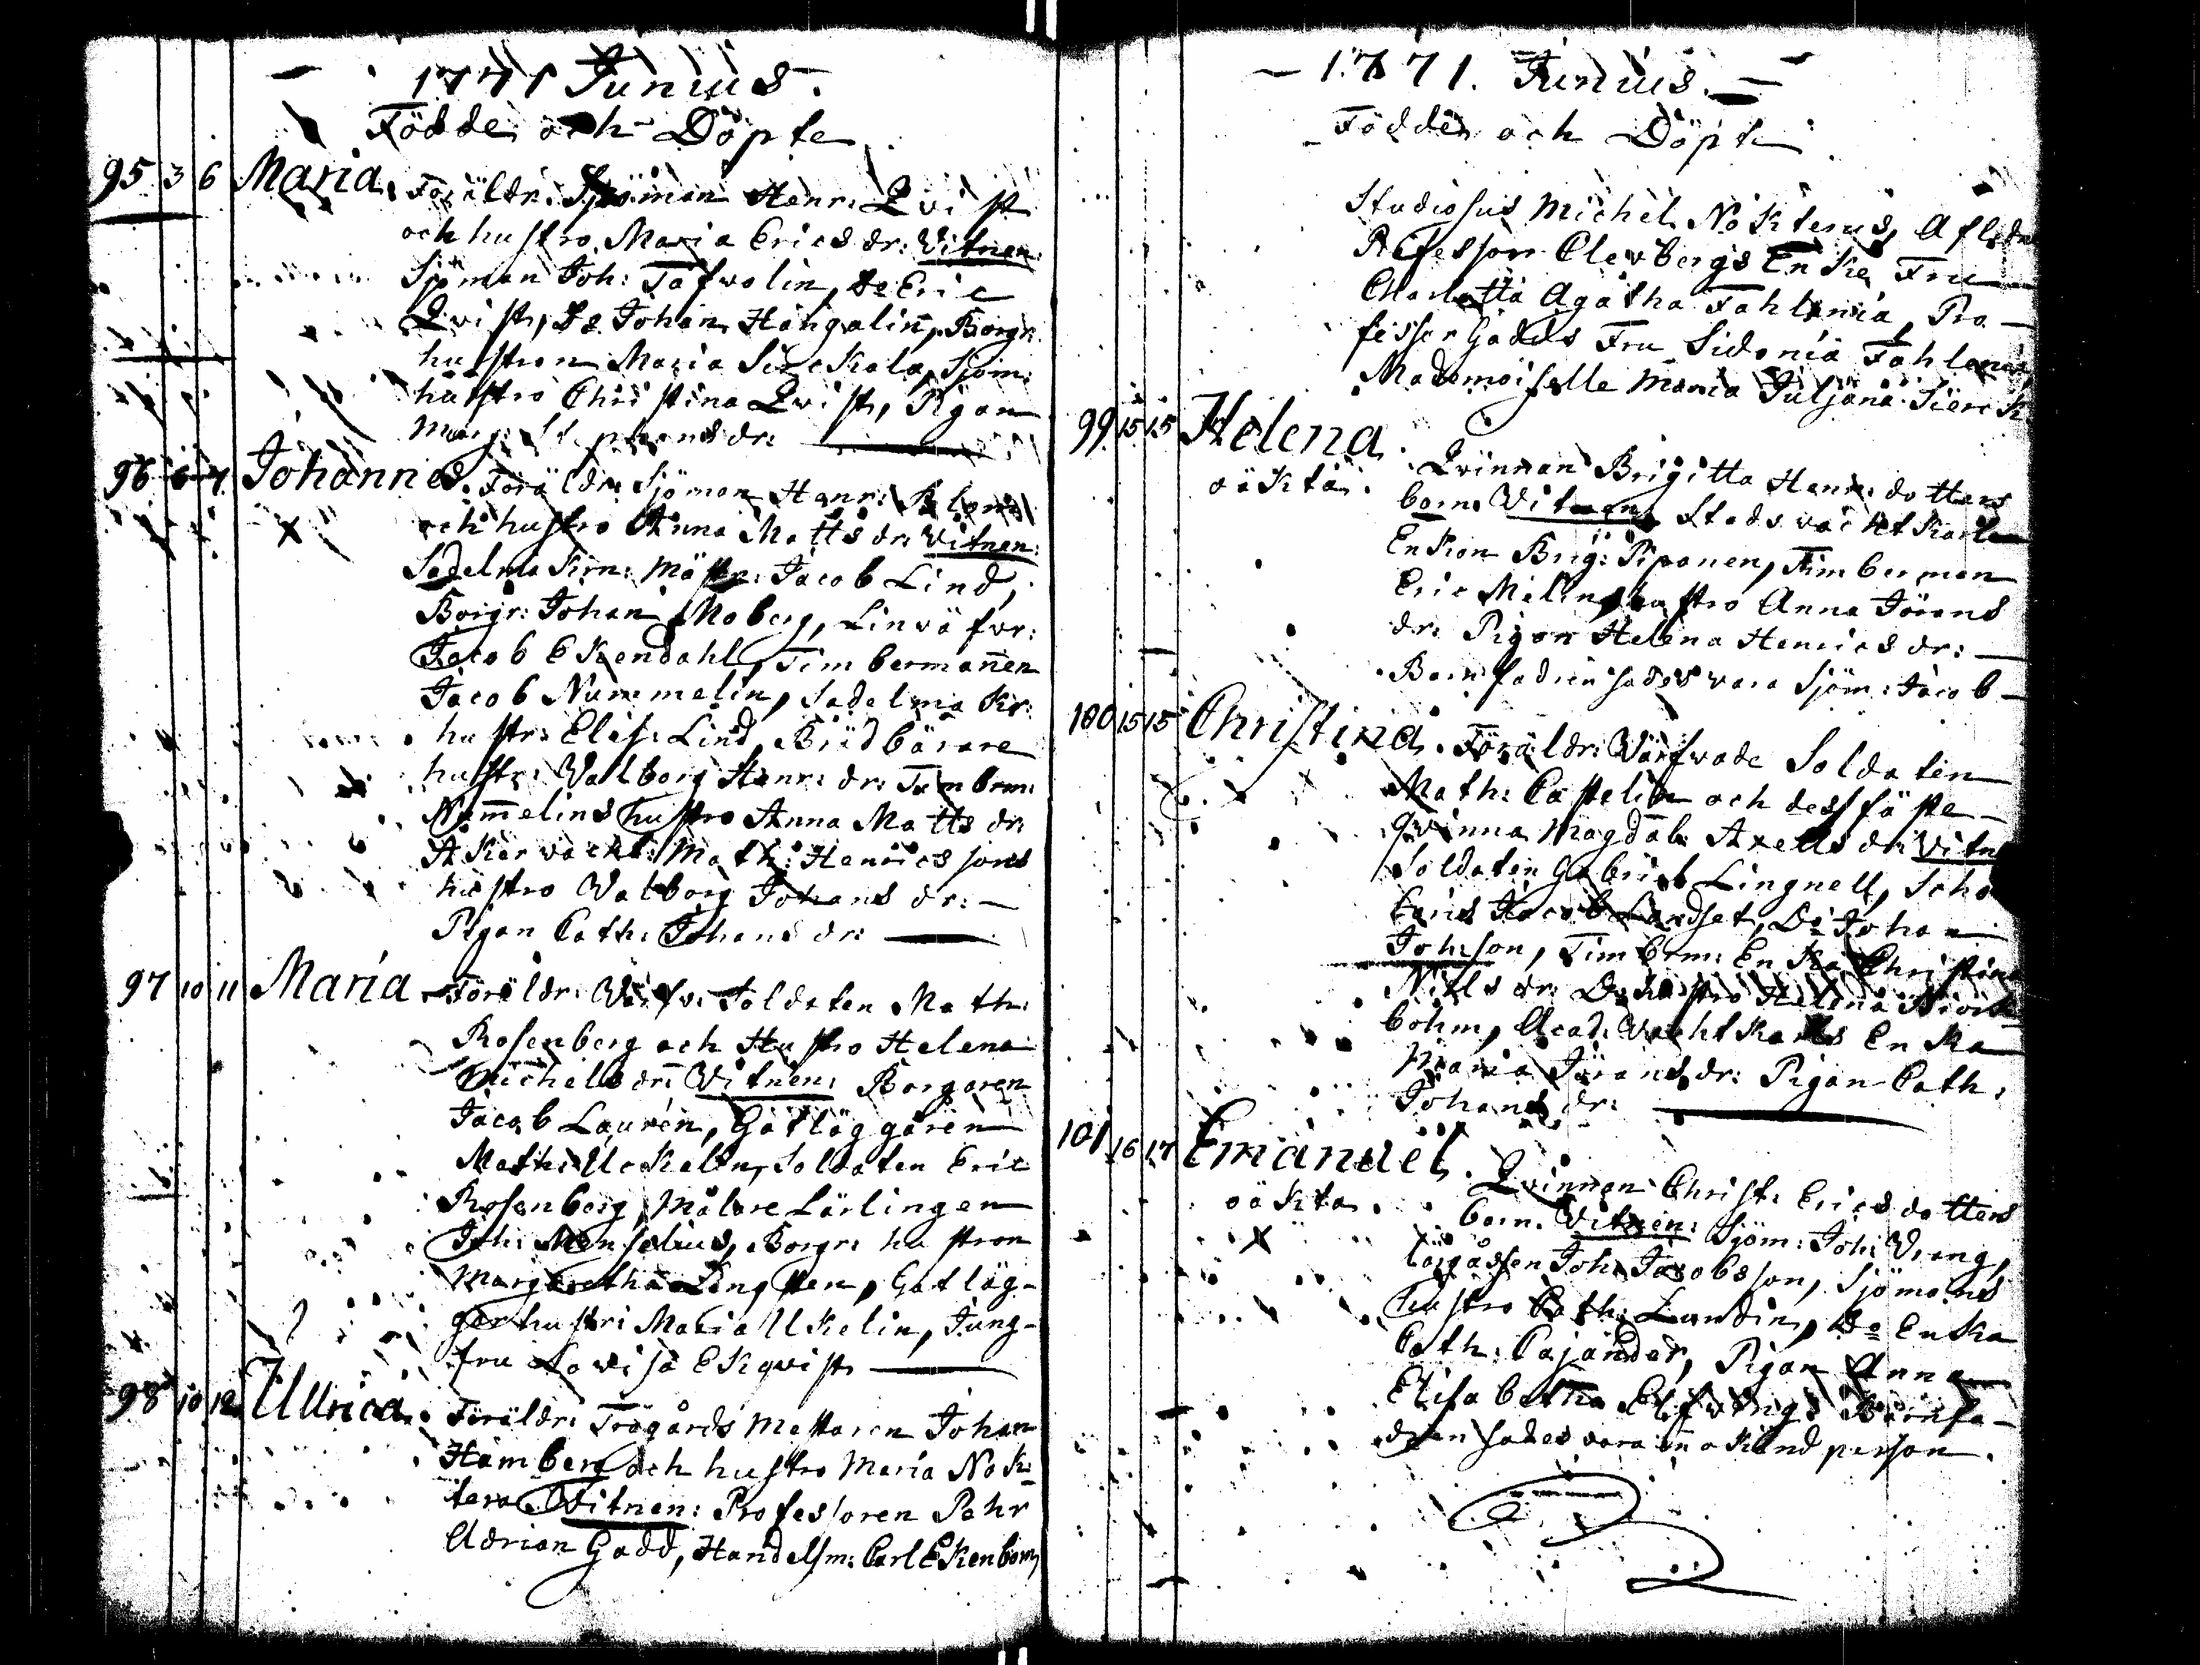 1771 Junius.
Födde och Döpte
95 3 6 Maria. Föräldr: Sjöman Henr: Qvist
och hustro Maria Erics dr: Vitnen:
Sjöman Joh: Tafwolin, Do Eric
Qvist, Do Johan Hongalin, Borgr:
hustron Maria Sirckala, Sjöm:
hustro Christina Qvist, Pigan
Marg: Stephans dr:
96 6 7 Johannes. Föräldr: Sjöman Henr:
och hustro Anna Matts dr: Vitnen:
Sadelmakrn: Mäster: Jacob Lind,
Borgr: Johan Moberg, Linwäfwr:
Jacob Ekendahl, Timbermanen
Jacob Nummelin, Sadelmakr:
hustr: Elis: Lind, Budbärare
hustr: Walborg Henr: dr: Timbrm:
Num̅elins hustro Anna Matts dr:
Åkerwacht: Math: Henricssons
hustro Walborg Johans dr:
Pigan Cath: Johans dr:
97 10 11 Maria Föräldr: Värfv: Soldaten Math:
Rosenberg och Hustro Helena
Michels dr: Witnen: Borgaren
Jacob Laurén, Gatläggaren
Math: Uckelin, Soldaten Eric
Rosenberg, Målare Lärlingen
Joh: Menselius, Borgr: hustron
Margaretha Lingsten, Gatläg-
gar hustr: Maria Ukelin, Jung-
fru Lovisa Ekqvist
98 10 12 Ulrica. Föräldr: Trägårds Mästaren Johan
Hamberg och hustro Maria Nok-
tera Witnen: Professoren Pehr
Adrian Gadd, Handelsm: Carl Ekenbom,
1771. Junius.
Födde och Döpte
Studiosus Michel Nokterus, Afledne
Professor Clewbergs Enke Fru
Charlotta Agatha Fahlenia, Pro-
fessor Gadds Fru Sidonia Fahlenia
Mademoiselle Maria Juljana Sierck
99 15 15 Helena. Qvinnan Brigitta Henr: dotters
oäkta. barn. Vitnen: Stads vacktkarls
Enkon Brig: Piponen, Timberman
Eric Melins hustro Anna Jörans
dr: Pigan Helena Henrics dr:
Barnfadren sades vara Sjöm: Jacob
100 15 15 Christina. Föräldr: Värfvade Soldaten
Math: Castelin och dess fäste-
qvinna Magdal: Axells dr: Vitn
Soldaten Gabriel Lingnell, Scho
Jacob Landset, Do Johan
Johsson, Timberm: Enka Christina
Nills dr: Do hustro Helena Biörk-
bohm, Acad: Vachtkarls Enka
Maria Jörans dr: Pigan Cath:
Johans dr:
101 16 17 Emanuel. Qvinnan Christ: Erics dotters
oäkta. barn. Vitnen: Sjöm: Joh: Vrang,
Joh: Jacobsson, Sjömans
hustro Cath: Lundin, Do Enka
Cath: Cajander, Pigan Anna
Elisabetha Elfving. Barnfa-
dren sades vara en̅ okiänd person.